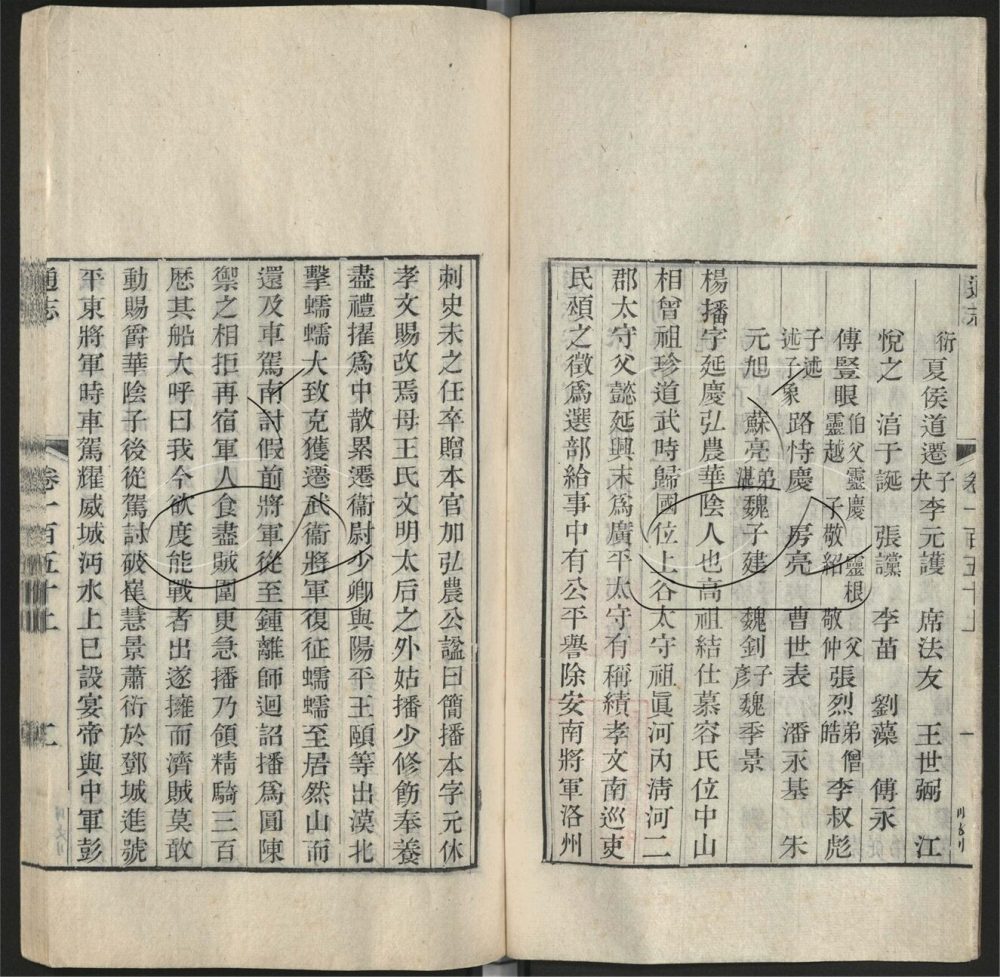 衍夏侯道遷子夬李元護 席法友 王世弼 江
悅之 淯于誕 張讜 李苗 劉藻 傅永
傳豎眼伯父靈慶靈根靈越子敬紹敬仲父張烈弟僧皓李叔彪
子述述子象路恃慶 房亮 曹世表 潘永基 朱
元旭 蘇亮弟湛魏子建 魏釗子彥魏季景
楊播字延慶弘農華陰人也高祖結仕慕容氏位中山
相曾祖珍道武時歸國位上谷太守祖眞河內清河二
郡太守父懿延興末爲廣平太守有稱績孝文南巡吏
民頌之徵爲選部給事中有公平譽除安南將軍洛州
刺史未之任卒贈本官加弘農公謚曰簡播本字元休
孝文賜改焉母王氏文明太后之外姑播少修飭奉養
盡禮擢爲中散累遷衞尉少卿與陽平王頤等出漠北
擊蠕蠕大致克獲遷武衞將軍復征蠕蠕至居然山而
還及車駕南討假前將軍從至鍾離師迴詔播爲圓陳
禦之相拒再宿軍人食盡賊圍更急播乃領精騎三百
歷其船大呼曰我今欲度能戰者出遂擁而濟賊莫敢
動賜爵華陰子後從駕討破崔慧景蕭衍於鄧城進號
平東將軍時車駕耀威城沔水上巳設宴帝與中軍彭
通志 卷一百五十上